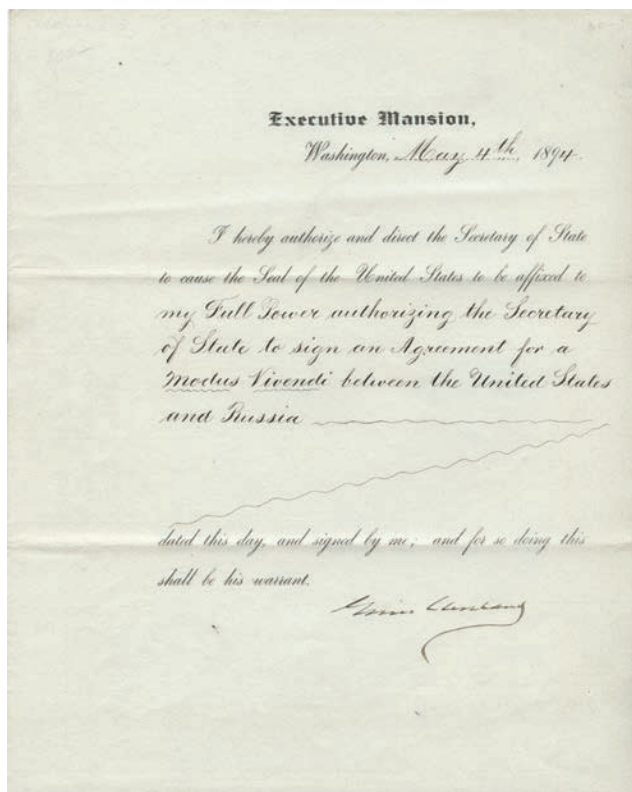 Executive Mansion,
Washington, May 4th, 1894.
I hereby authorize and direct the Secretary of State
to cause the Seal of the United States to be affixed to
my Full Power authorizing the Secretary
of State to sign an Agreement for a
Modus Vivendi between the United States
and Russia
dated this day, and signed by me; and for so doing this
shall be his warrant.
Grover Cleveland